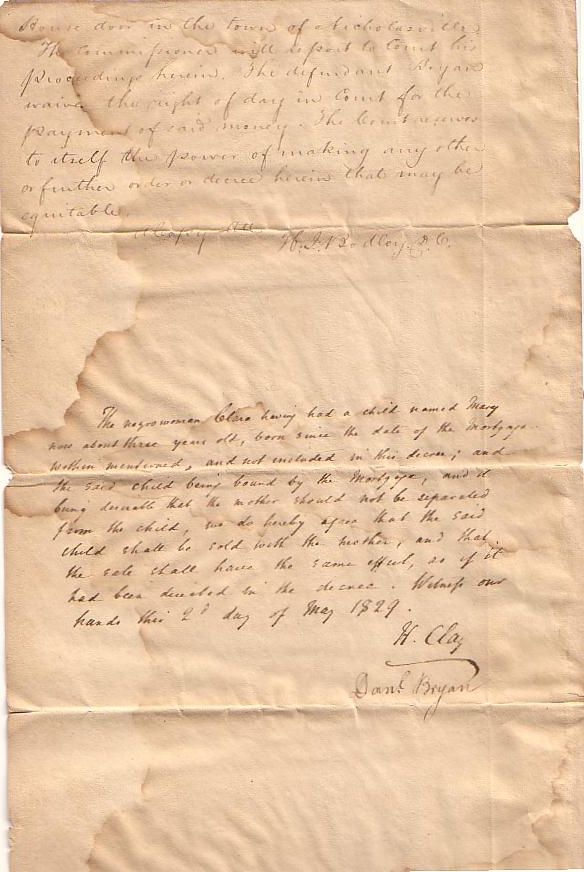 House door in the town of Nicholasville.
The Commissioner will report to Court his
proceedings herein. The defendant Bryan
waives the right of day in Court for the
payment of said money. The Court reserves
to itself the power of making any other
or further order or decree herein that may be
equitable.
A Copy Att
H. I. Bodley. D. C.
The negro woman Clara having had a child named Mary
now about three years old, born since the date of the Mortgage
within mentioned, and not included in this decree; and
the said child being bound by the Mortgage, and it
being desirable that the mother should not be separated
from the child, we do hereby agree that the said
child shall be sold with the mother, and that
the sale shall have the same effect, as if it
had been directed in the decree. Witness our
hands this 2d day of May 1829.
H. Clay
Danl Bryan